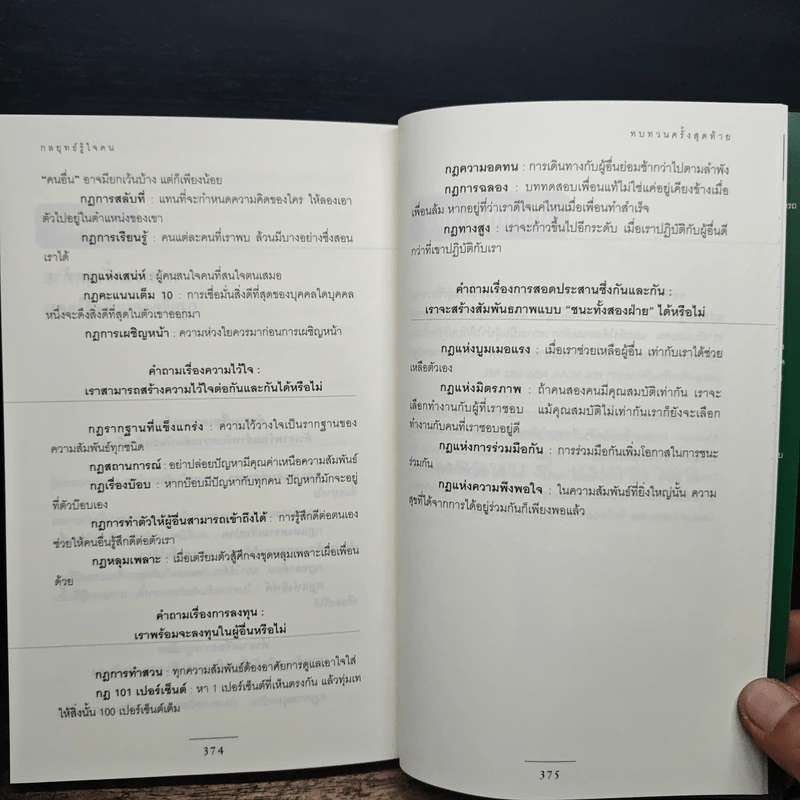 กลยุทธ์รู้ใจคน
"คนอื่น" อาจมียกเว้นบ้าง แต่ก็เพียงน้อย
กฎการสลับที่ : แทนที่จะกำหนดความคิดของใคร ให้ลองเอา
ตัวไปอยู่ในตำแหน่งของเขา
กฎการเรียนรู้ : คนแต่ละคนที่เราพบ ล้วนมีบางอย่างซึ่งสอน
เราได้
กฎแห่งเสน่ห์ : ผู้คนสนใจคนที่สนใจตนเสมอ
กฎคะแนนเต็ม 10 : การเชื่อมั่นสิ่งดีที่สุดของบุคคลใดบุคคล
หนึ่งจะดึงสิ่งดีที่สุดในตัวเขาออกมา
กฎการเผชิญหน้า : ความห่วงใยควรมาก่อนการเผชิญหน้า
คำถามเรื่องความไว้ใจ :
เราสามารถสร้างความไว้ใจต่อกันและกันได้หรือไม่
กฎรากฐานที่แข็งแกร่ง : ความไว้วางใจเป็นรากฐานของ
ความสัมพันธ์ทุกชนิด
กฎสถานการณ์ : อย่าปล่อยปัญหามีคุณค่าเหนือความสัมพันธ์
กฎเรื่องบ๊อบ : หากบ๊อบมีปัญหากับทุกคน ปัญหาก็มักจะอยู่
ที่ตัวบ๊อบเอง
กฎการทำตัวให้ผู้อื่นสามารถเข้าถึงได้ : การรู้สึกดีต่อตนเอง
ช่วยให้คนอื่นรู้สึกดีต่อตัวเรา
กฎหลุมเพลาะ : เมื่อเตรียมตัวสู้ศึกจงขุดหลุมเพลาะเผื่อเพื่อน
ด้วย
คำถามเรื่องการลงทุน :
เราพร้อมจะลงทุนในผู้อื่นหรือไม่
กฎการทำสวน : ทุกความสัมพันธ์ต้องอาศัยการดูแลเอาใจใส่
กฎ 101 เปอร์เซ็นต์ : หา 1 เปอร์เซ็นต์ที่เห็นตรงกัน แล้วทุ่มเท
ให้สิ่งนั้น 100 เปอร์เซ็นต์เต็ม
374
ทบทวนครั้งสุดท้าย
กฎความอดทน : การเดินทางกับผู้อื่นย่อมช้ากว่าไปตามลำพัง
กฎการฉลอง : บททดสอบเพื่อนแท้ไม่ใช่แค่อยู่เคียงข้างเมื่อ
เพื่อนล้ม หากอยู่ที่ว่าเราดีใจแค่ไหนเมื่อเพื่อนทำสำเร็จ
กฎทางสูง : เราจะก้าวขึ้นไปอีกระดับ เมื่อเราปฏิบัติกับผู้อื่นดี
กว่าที่เขาปฏิบัติกับเรา
คำถามเรื่องการสอดประสานซึ่งกันและกัน :
เราจะสร้างสัมพันธภาพแบบ "ชนะทั้งสองฝ่าย" ได้หรือไม่
กฎแห่งบูมเมอแรง : เมื่อเราช่วยเหลือผู้อื่น เท่ากับเราได้ช่วย
เหลือตัวเอง
กฎแห่งมิตรภาพ : ถ้าคนสองคนมีคุณสมบัติเท่ากัน เราจะ
เลือกทำงานกับผู้ที่เราชอบ แม้คุณสมบัติไม่เท่ากันเราก็ยังจะเลือก
ทำงานกับคนที่เราชอบอยู่ดี
กฎแห่งการร่วมมือกัน : การร่วมมือกันเพิ่มโอกาสในการชนะ
ร่วมกัน
กฎแห่งความพึงพอใจ : ในความสัมพันธ์ที่ยิ่งใหญ่นั้น ความ
สุขที่ได้จากการได้อยู่ร่วมกันก็เพียงพอแล้ว
375